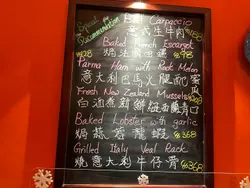 Special Recommendation
Beef Carpaccio
意式生牛肉 $
Baked French Escargot
焗法國田螺 $98
Parma Ham with Rock Melon
意大利巴馬火腿配蜜
Fresh New Zealand Mussels
白酒煮新鮮紐西蘭青口
Baked Lobster with garlic
焗蒜蓉龍蝦 $368
Grilled Italy Veal Rack
燒意大利牛仔骨 $368